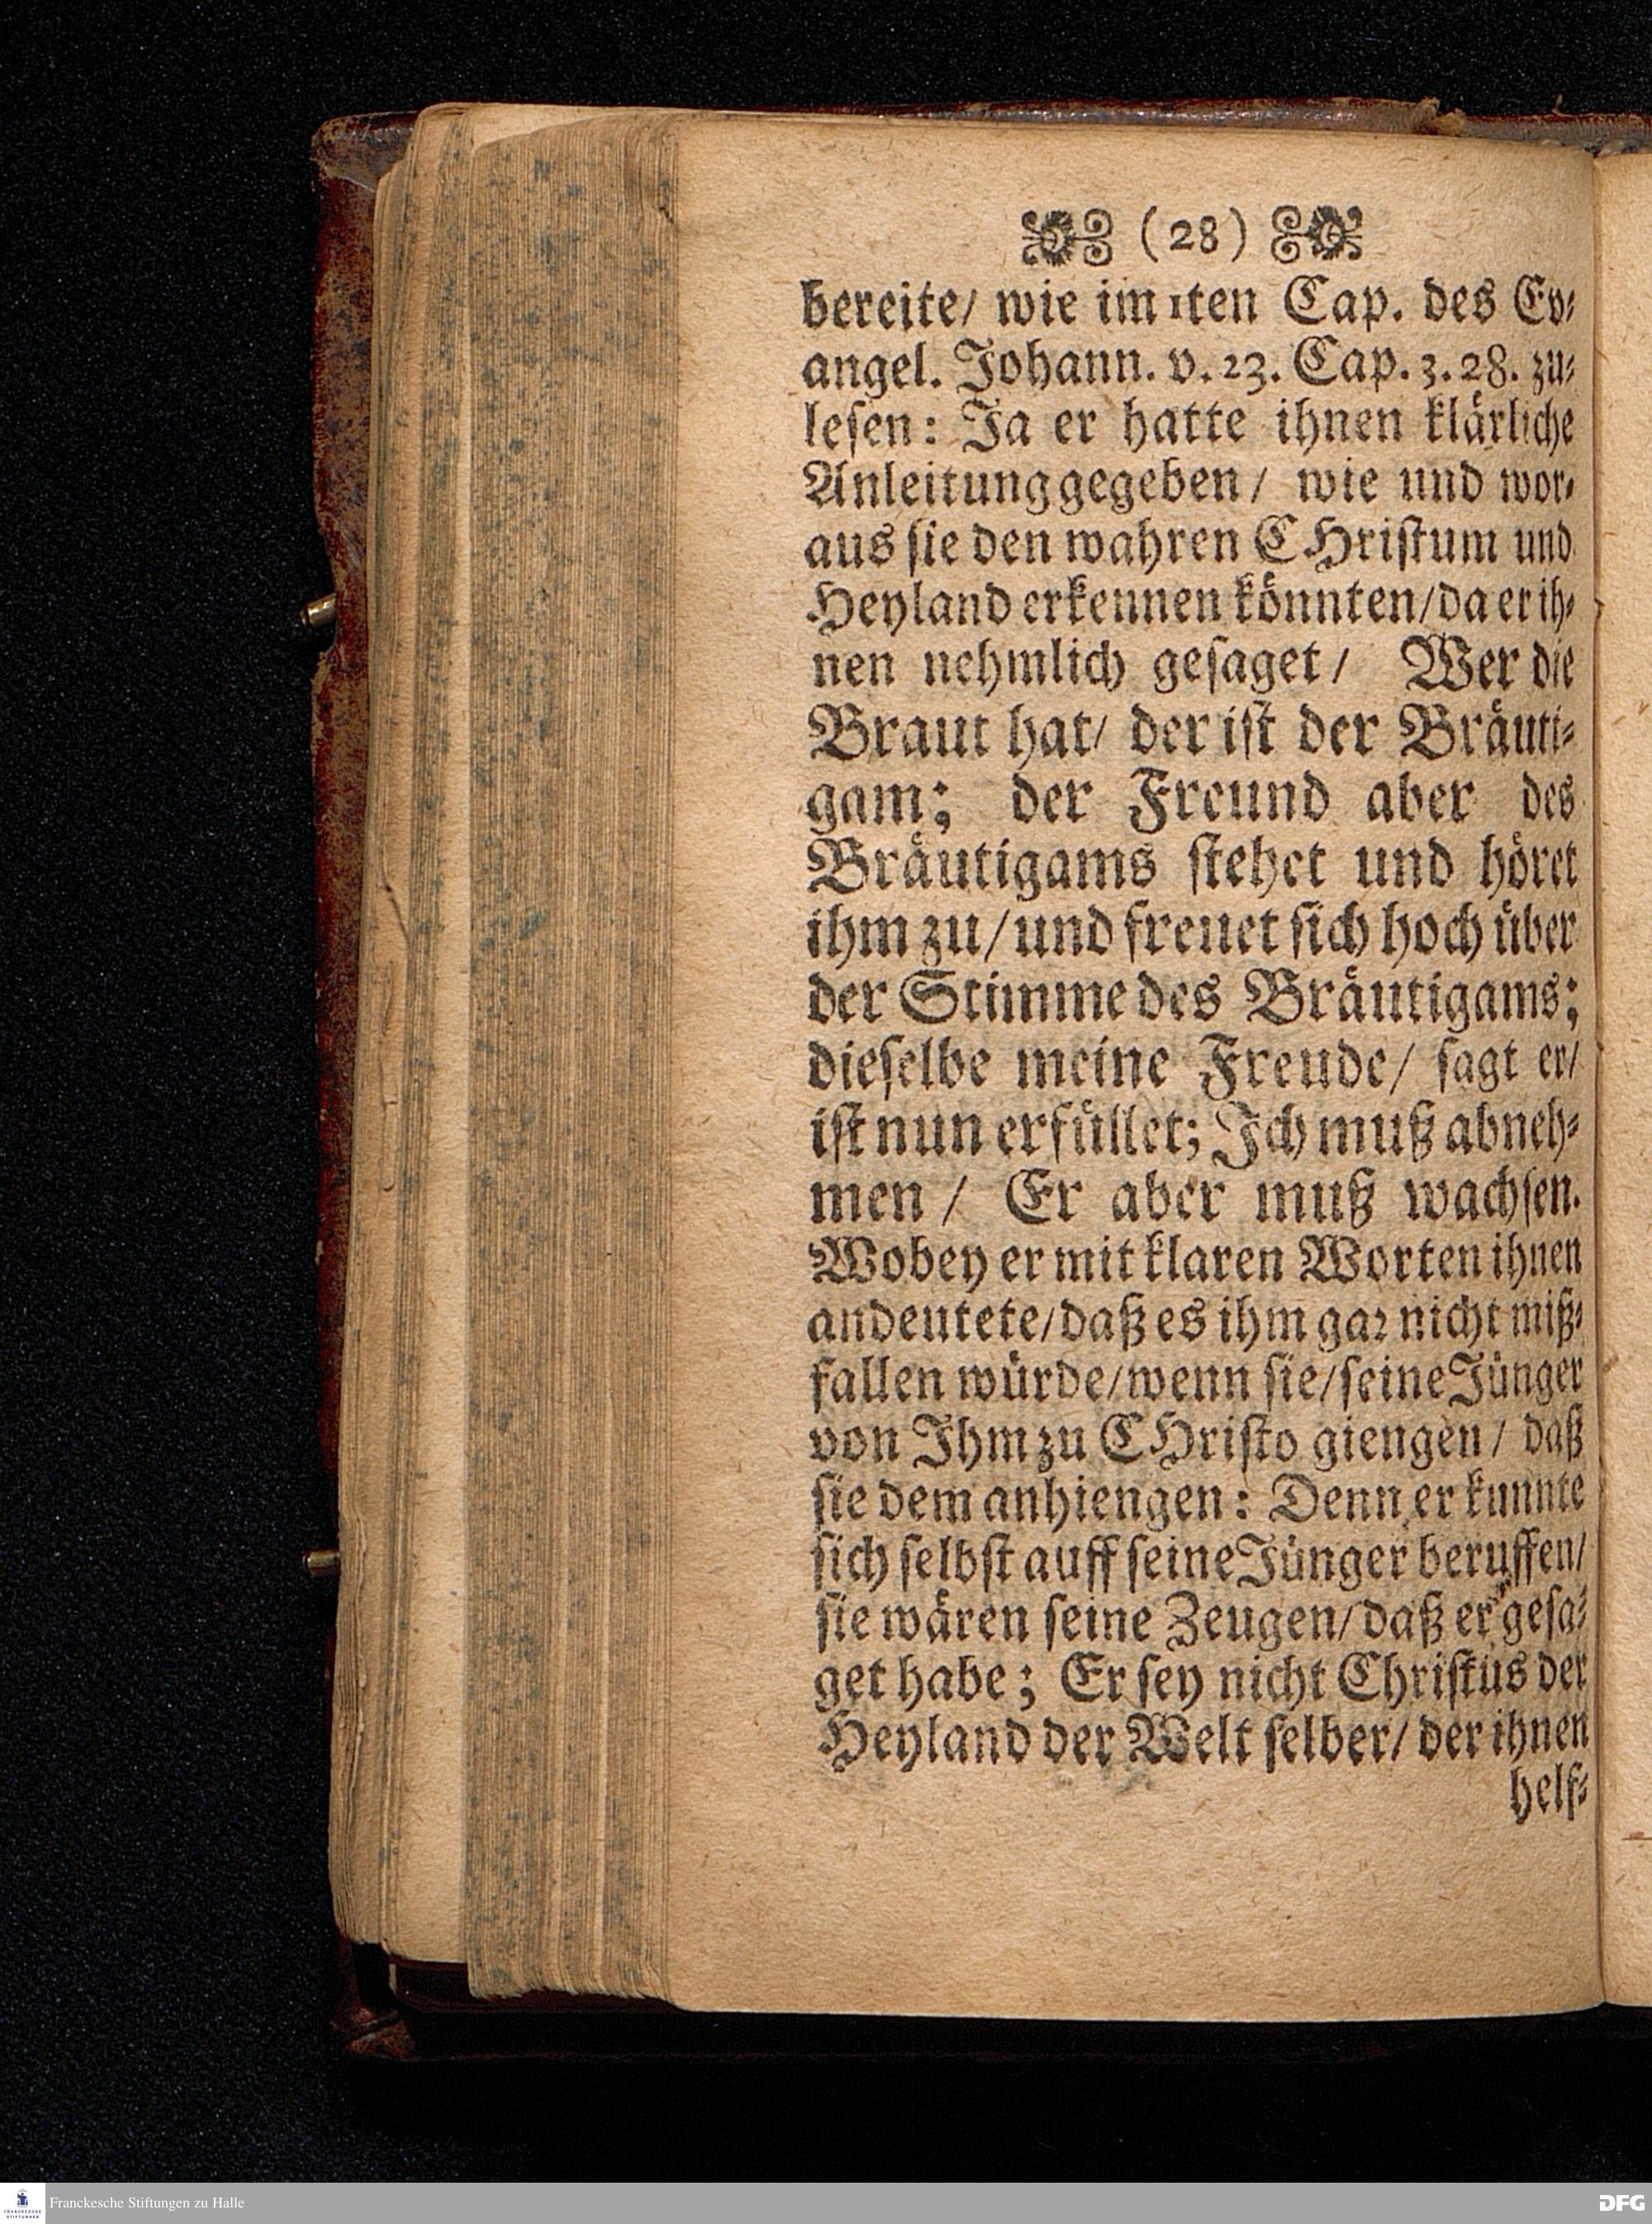 (28)
bereite/ wie im 1ten Cap. des Ev-
angel. Johann. v. 23. Cap. 3. 28. zu-
lesen: Ja er hatte ihnen klärliche
Anleitung gegeben/ wie und wor-
aus sie den wahren CHristum und
Heyland erkennen könnten/ da er ih-
nen nehmlich gesaget/ Wer die
Braut hat/ der ist der Bräuti-
gam; der Freund aber des
Bräutigams stehet und höret
ihm zu/ und freuet sich hoch über
der Stimme des Bräutigams;
dieselbe meine Freude/ sagt er/
ist nun erfüllet; Ich muß abneh-
men/ Er aber muß wachsen.
Wobey er mit klaren Worten ihnen
andeutete/ daß es ihm gar nicht miß-
fallen würde/ wenn sie/ seine Jünger
von Ihm zu CHristo giengen/ daß
sie dem anhiengen: Denn er kunnte
sich selbst auff seine Jünger beruffen/
sie wären seine Zeugen/ daß er gesa-
get habe; Er sey nicht Christus der
Heyland der Welt selber/ der ihnen
helf-
FRANCKESCHE
STIFTUNGEN
Franckesche Stiftungen zu Halle
DFG